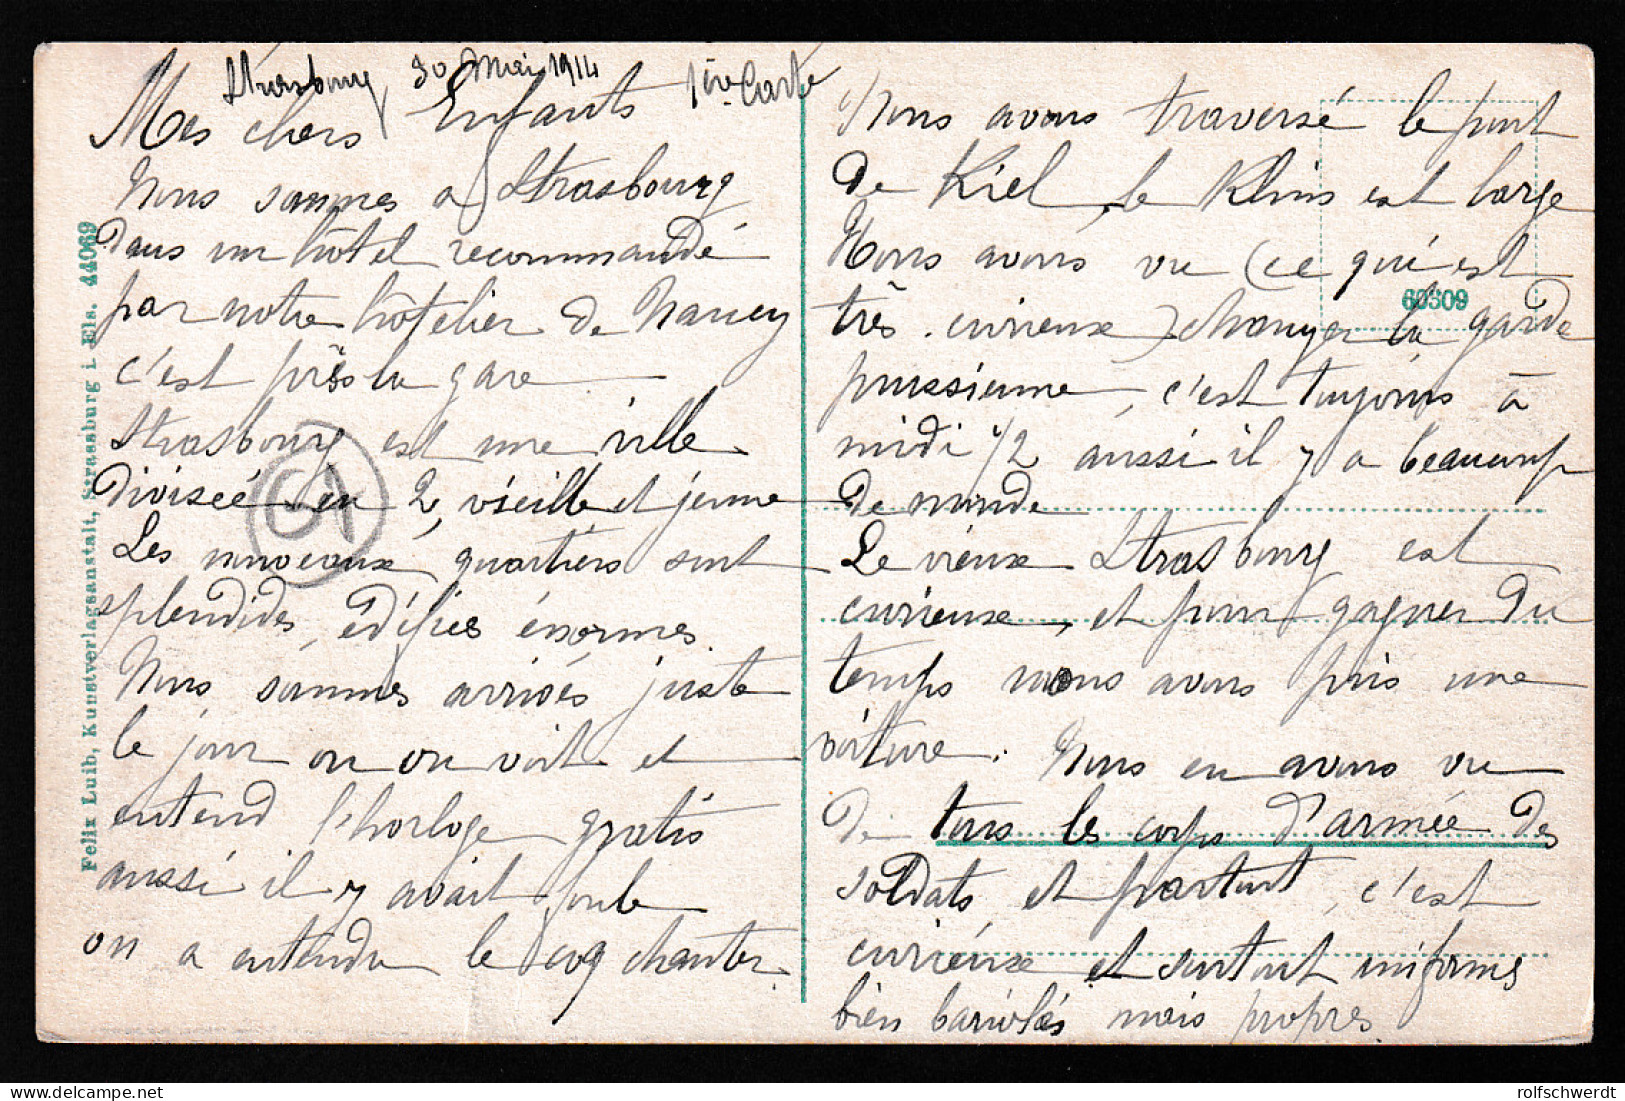 Strasbourg 30 Mai 1914 1ère Carte
Mes chers Enfants
Nous sommes a Strasbourg
dans un hôtel recommandé
par notre hôtelier de Nancy
c'est près la gare
Strasbourg est une ville
divisée en 2, vieille et jeune
Les nouveaux quartiers sont
splendides, édifices énormes.
Nous sommes arrivés juste
le jour ou on voit et
entend l'horloge gratis
aussi il y avait foule
on a entendu le coq chanter.
Nous avons traversé le pont
de Kiel, le Rhins est large
Nous avons vu (ce qui est
très curieuse) changer la garde
prussienne, c'est toujours à
midi 1/2 aussi il y a beaucoup
de monde
Le vieux Strasbourg est
curieuse, et pour gagner du
temps nous avons pris une
voiture. Nous en avons vu
de tous les corps d'armée des
soldats et partout, c'est
curieuse et surtout uniformes
bien bariolés mais propres
Felix Luib, Kunstverlagsanstalt, Strassburg i. Els. 44069
60309
rolfschwerdt